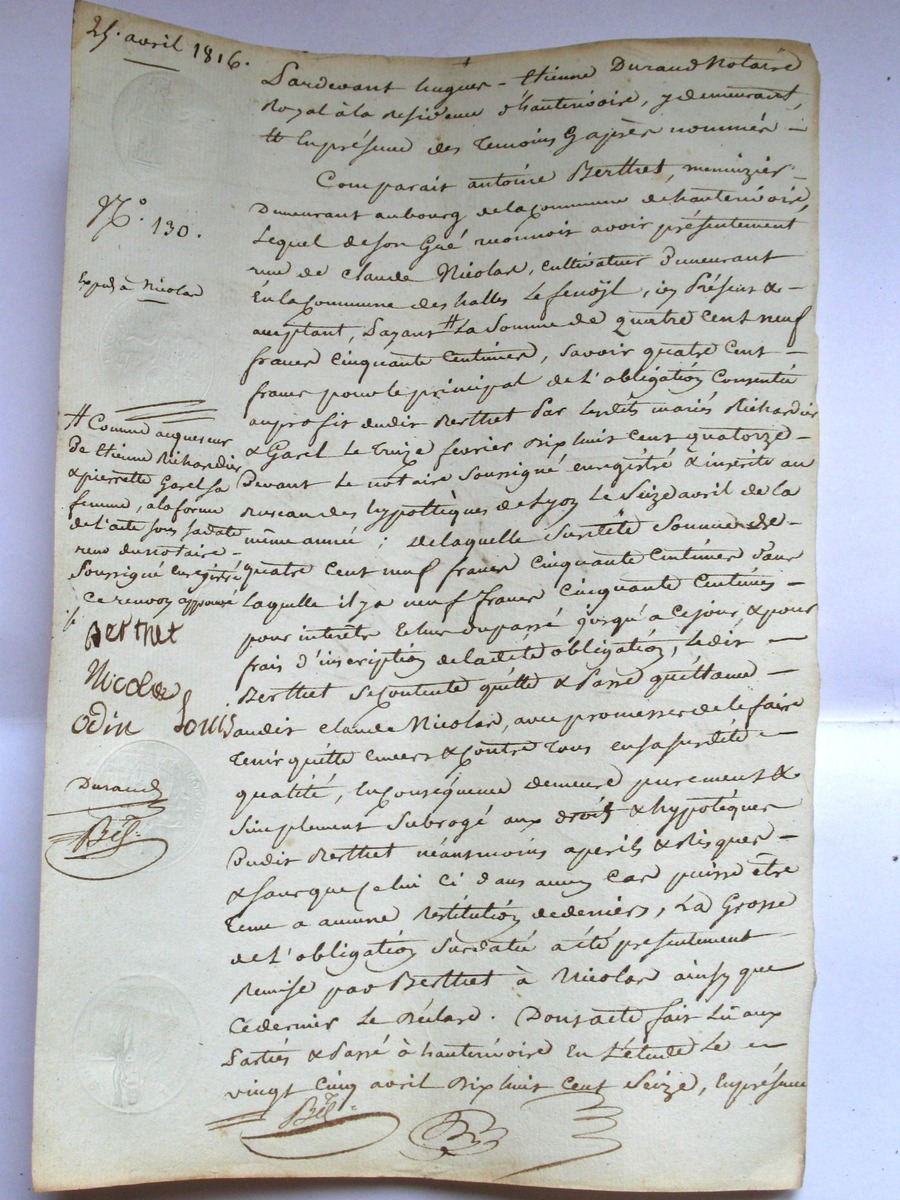 25. avril 1816.
Pardevant hugues-Etienne Durand Notaire
Royal à la residence d'hauterivoire, y demeurant,
# En présence des Temoins Cy après nommés -
Comparait antoine Berthet, menuizier
Demeurant au bourg de la Commune de hauterivoire,
Lequel de son Gré reconnoit avoir présentement
reçu de Claude Nicolas, cultivateur Demeurant
En la Commune des halles Le fenoÿl, icy Présent & -
acceptant, Payant # La Somme de quatre cent neuf
francs cinquante centimes, savoir quatre cent -
francs pour le principal de L'obligation Consentie
au profit dudit Berthet Par lesdits mariés Richardier
& Garel Le Treize fevrier Dix huit cent quatorze -
Devant Le notaire Soussigné enregistré & inscrite au
bureau des hypothèques de Lyon Le Seize avril de la
même année ; de laquelle Susditte Somme de -
quatre cent neuf francs Cinquante Centimes dans
Laquelle il y a neuf francs Cinquante Centimes -
pour interêts Echus du passé jusqu'à ce jour & pour
frais d'inscription de ladite obligation, Ledit -
Berthet Se Contente quitte & Passe quittance -
audit Claude Nicolas, avec promesse de le faire
Tenir quitte envers & Contre Tous en sa susdite -
qualité, En Conséquence demeure purement &
Simplement Subrogé aux droits & hypotèques
Dudit Berthet néantmoins a perils & Risques -
& Sans que Celui Ci dans aucun Cas puisse être
Tenu a aucune Restitution de deniers, La Grosse
de L'obligation Surdatée a été présentement
Remise par Berthet à Nicolas ainsy que
Ce dernier Le Déclare. Dont acte fait Lu aux
Parties & Passé à hauterivoire En L'étude Le
vingt Cinq avril Dix huit cent Seize, En présence
N.° 130.
Exped. à Nicolas
# Comme acquereur
De Etienne Richardier
& pierrette Garel sa
femme, a la forme
de l'acte sous sa date
recu du notaire -
Soussigné enregistré
Ce renvoy approuvé
Berthet
Nicolas
Odin Louis
Durand